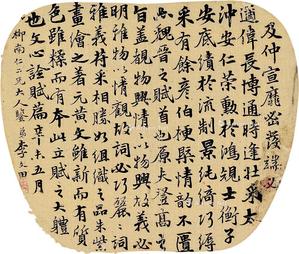 及仲宣靡密發端必
遒偉長博通時逢壯采太
沖安仁策勳於鴻規士衡子
安底績於流制景純綺巧縟
有餘彥伯梗槩情韻不匱
亦魏晉之賦首也原夫登高之
旨蓋覩物興情情以物興故義必
明雅物以情觀故詞必巧麗麗詞
雅義符采相勝如組織之品朱紫
畫繪之著元黃文雖新而有質
色雖糅而有本此立賦之大體
也文心詮賦篇辛未五月
柳南仁二兄大人鑒弟李文田